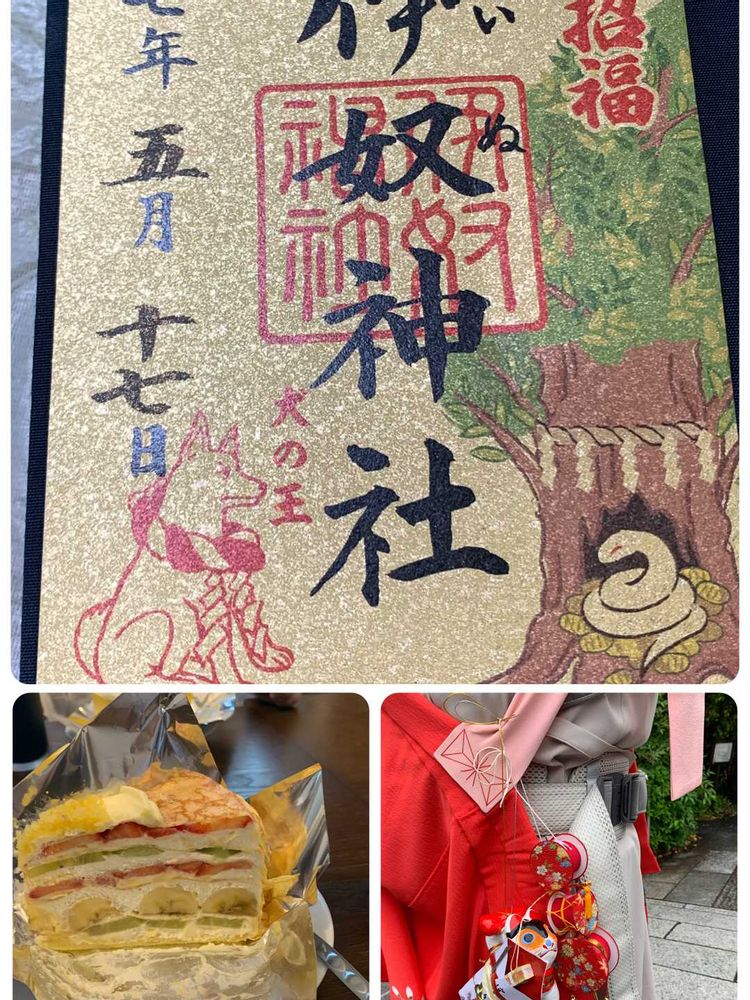 招福
伊奴神社
い
ぬ
犬の王
七年 五月 十七日